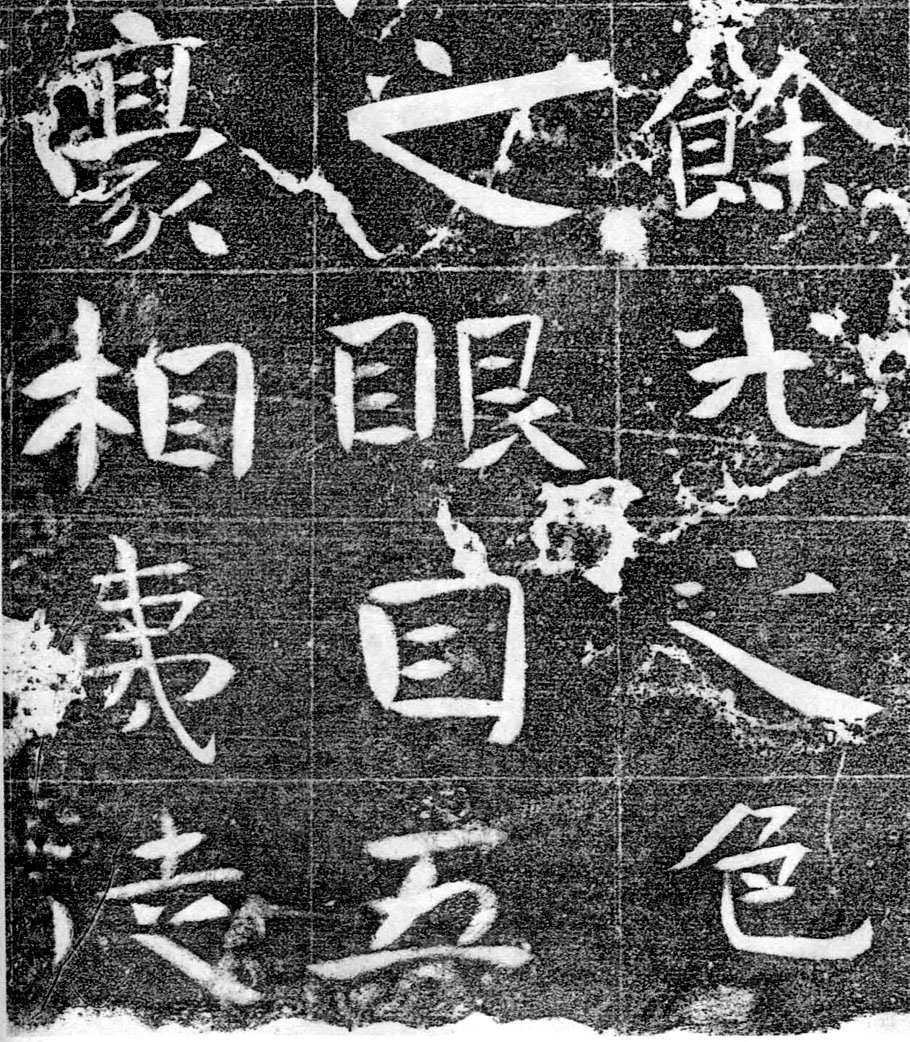 餘光之色
之眼自五
豪相夷法